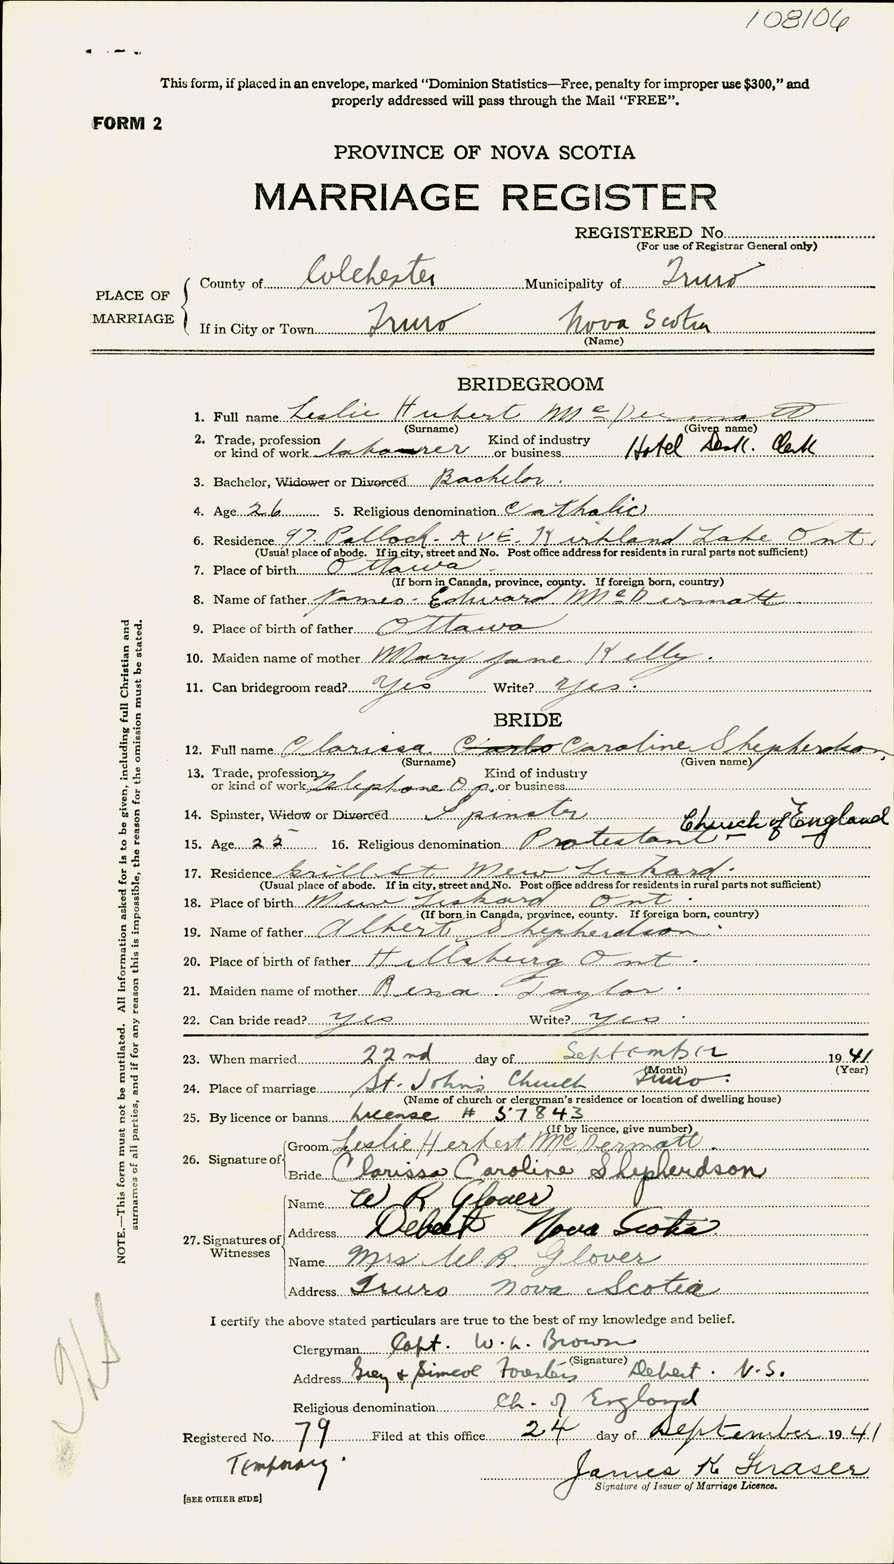 108106
This form, if placed in an envelope, marked “Dominion Statistics—Free, penalty for improper use $300,” and
properly addressed will pass through the Mail “FREE”.
FORM 2
PROVINCE OF NOVA SCOTIA
MARRIAGE REGISTER
REGISTERED No.
(For use of Registrar General only)
PLACE OF MARRIAGE
County of Colchester Municipality of Truro
If in City or Town Truro Nova Scotia
(Name)
BRIDEGROOM
1. Full name Leslie Hubert McDermatt
(Surname) (Given name)
2. Trade, profession or kind of work labourer Kind of industry or business Hotel Desk. Clerk
3. Bachelor, Widower or Divorced Bachelor.
4. Age 26 5. Religious denomination Catholic
6. Residence 97 Pollock. AVE. Kirkland Lake Ont.
(Usual place of abode. If in city, street and No. Post office address for residents in rural parts not sufficient)
7. Place of birth Ottawa
(If born in Canada, province, county. If foreign born, country)
8. Name of father James. Edward McDermatt
9. Place of birth of father Ottawa
10. Maiden name of mother Mary Jane Kelly.
11. Can bridegroom read? Yes Write? Yes.
BRIDE
12. Full name Clarissa Caroline Shepherdson
(Surname) (Given name)
13. Trade, profession or kind of work Telephone Op. Kind of industry or business
14. Spinster, Widow or Divorced Spinster
Church of England
15. Age 25 16. Religious denomination Protestant
17. Residence St New Liskard.
(Usual place of abode. If in city, street and No. Post office address for residents in rural parts not sufficient)
18. Place of birth New Liskard Ont.
(If born in Canada, province, county. If foreign born, country)
19. Name of father Albert Shepherdson.
20. Place of birth of father Hillsburg Ont.
21. Maiden name of mother Rena. Taylor.
22. Can bride read? Yes Write? Yes.
23. When married 22nd day of September 1941
(Month) (Year)
24. Place of marriage St. John's Church Truro.
(Name of church or clergyman's residence or location of dwelling house)
25. By licence or banns License # 57843
(If by licence, give number)
26. Signature of Groom Leslie Herbert McDermatt.
Bride Clarissa Caroline Shepherdson
27. Signatures of Witnesses
Name W R Glover
Address Debert Nova Scotia
Name Mrs W R Glover
Address Truro Nova Scotia
I certify the above stated particulars are true to the best of my knowledge and belief.
Clergyman Capt. W. L. Brown
(Signature)
Address Grey & Simcoe Foresters Debert. N.S.
Religious denomination Ch. of England
Registered No. 79 Filed at this office 24 day of September 1941
Temporary.
James K Fraser
Signature of Issuer of Marriage Licence.
[SEE OTHER SIDE]
NOTE.—This form must not be mutilated. All information asked for is to be given, including full Christian and
surnames of all parties, and if for any reason this is impossible, the reason for the omission must be stated.